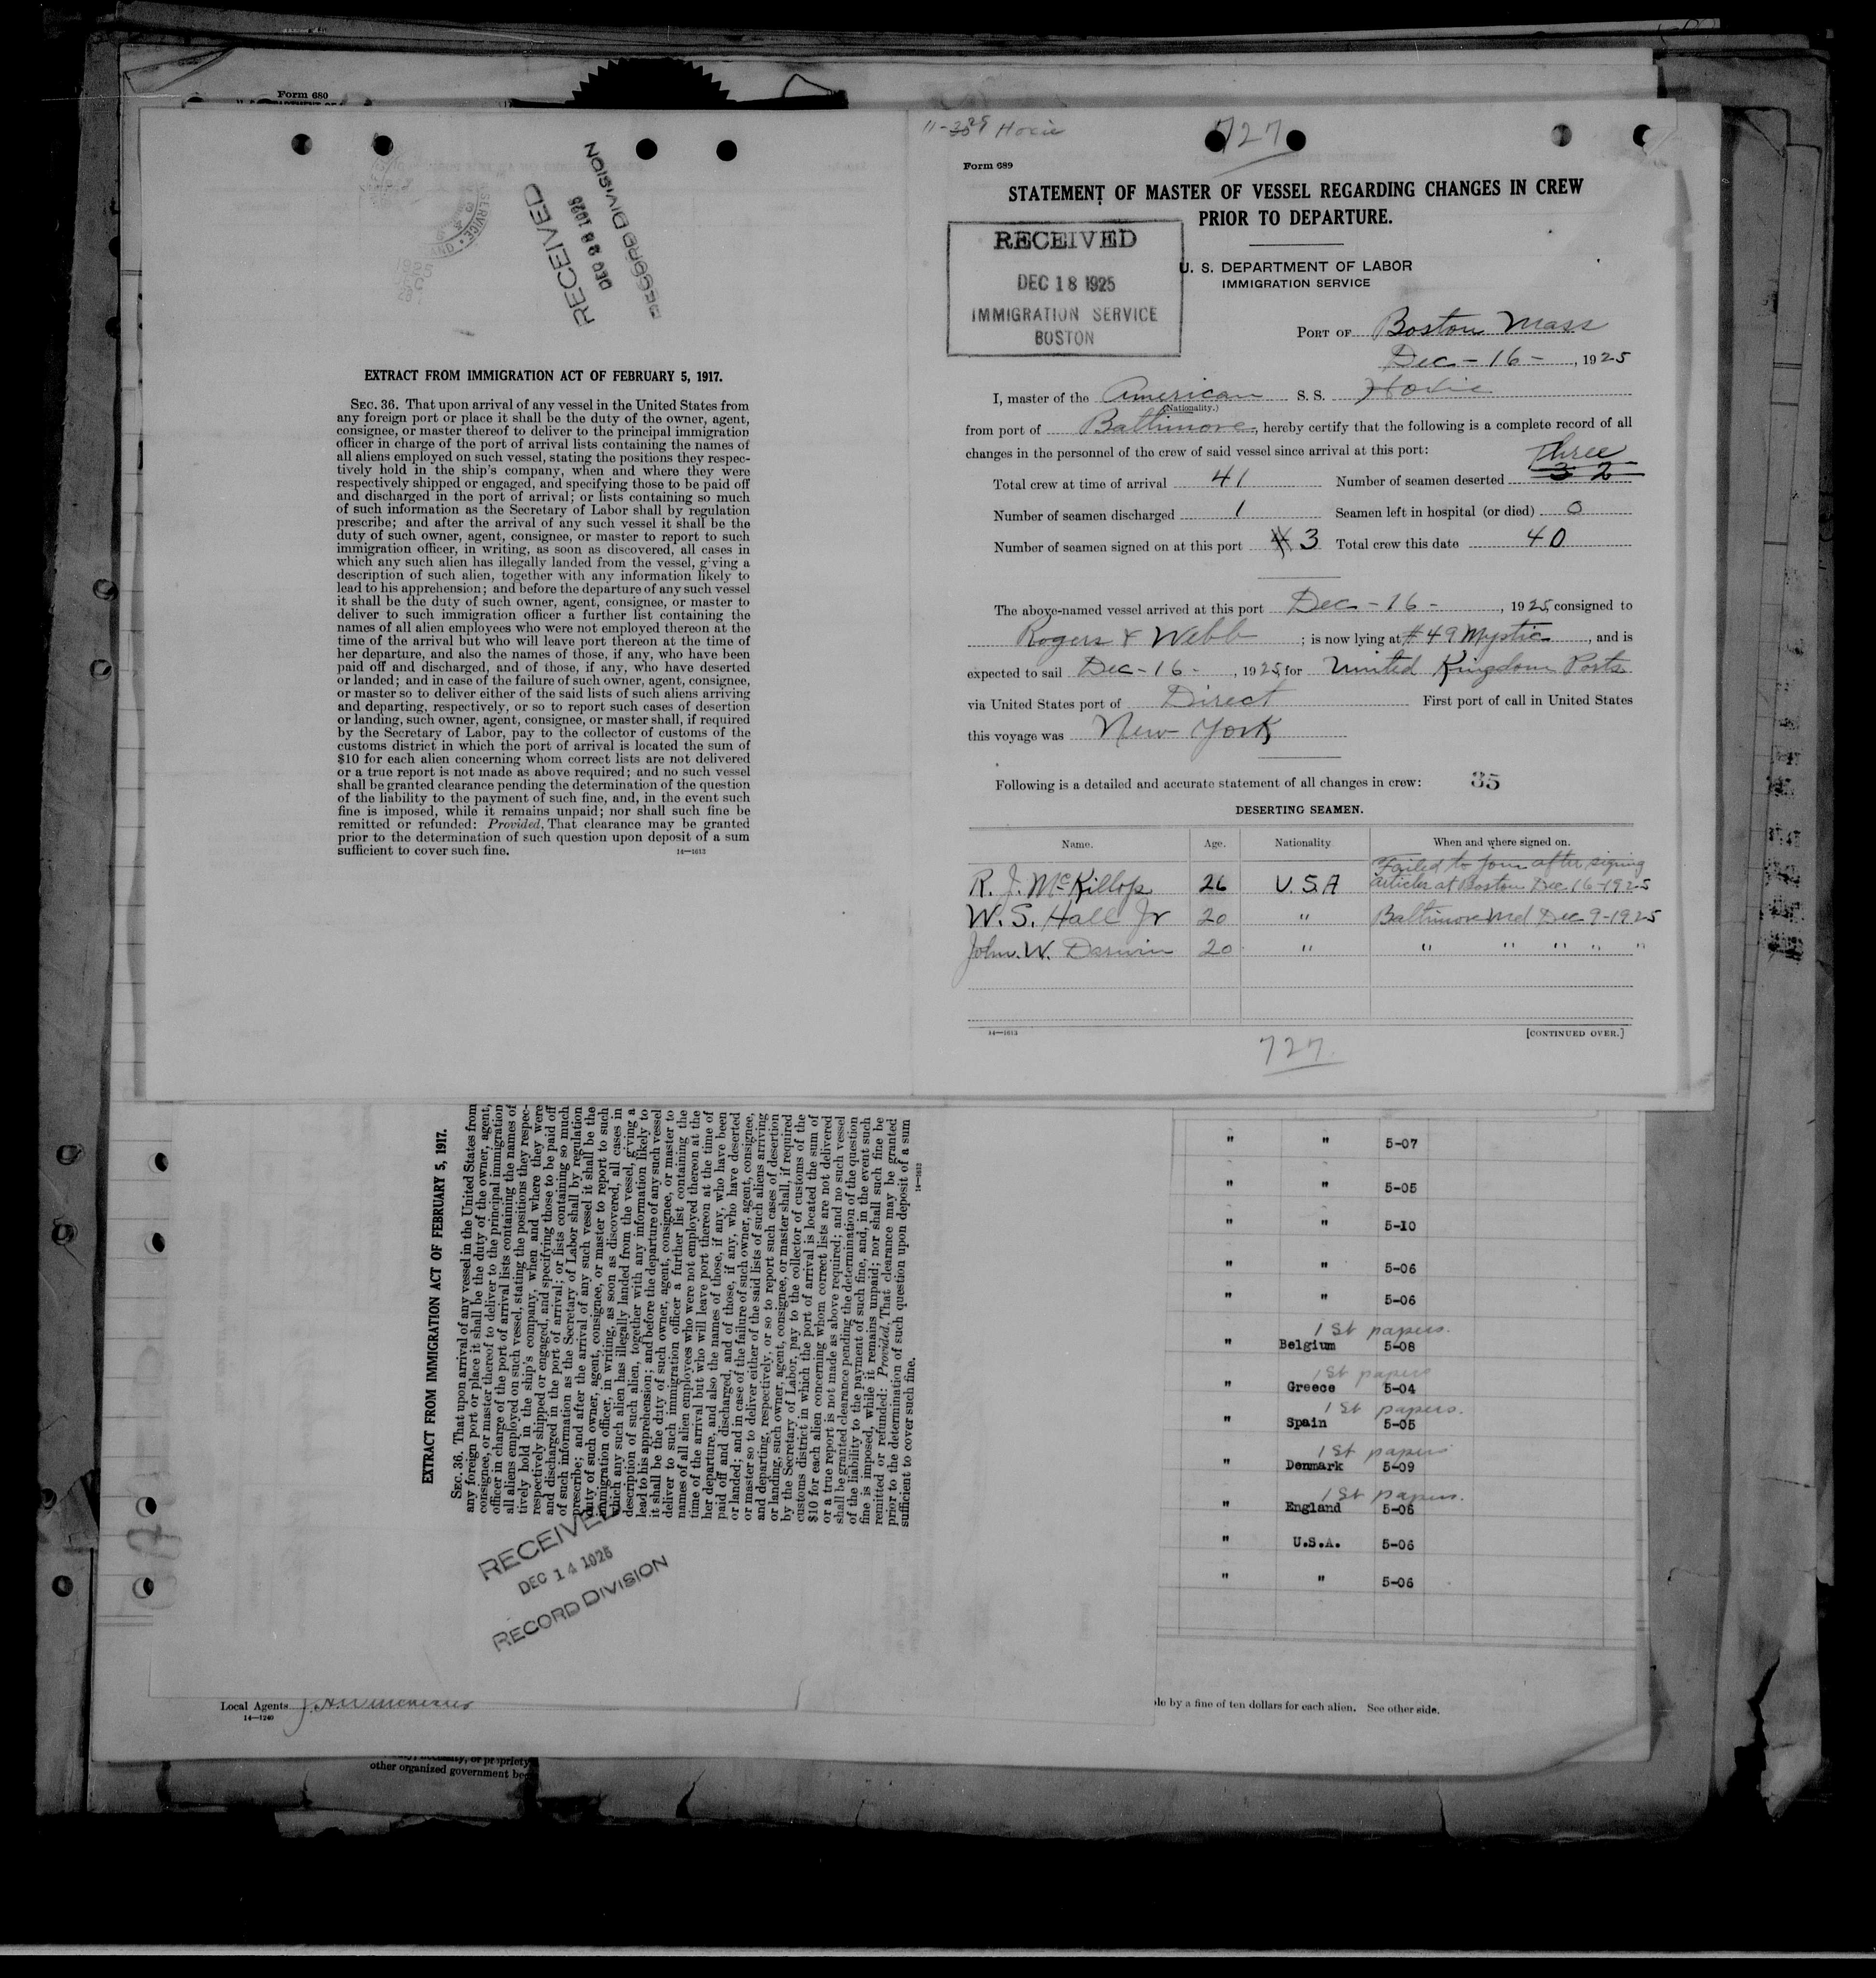 Form 680
RECEIVED
DEC 28 1925
RECORD DIVISION
EXTRACT FROM IMMIGRATION ACT OF FEBRUARY 5, 1917.
SEC. 36. That upon arrival of any vessel in the United States from
any foreign port or place it shall be the duty of the owner, agent,
consignee, or master thereof to deliver to the principal immigration
officer in charge of the port of arrival lists containing the names of
all aliens employed on such vessel, stating the positions they respec-
tively hold in the ship's company, when and where they were
respectively shipped or engaged, and specifying those to be paid off
and discharged in the port of arrival; or lists containing so much
of such information as the Secretary of Labor shall by regulation
prescribe; and after the arrival of any such vessel it shall be the
duty of such owner, agent, consignee, or master to report to such
immigration officer, in writing, as soon as discovered, all cases in
which any such alien has illegally landed from the vessel, giving a
description of such alien, together with any information likely to
lead to his apprehension; and before the departure of any such vessel
it shall be the duty of such owner, agent, consignee, or master to
deliver to such immigration officer a further list containing the
names of all alien employees who were not employed thereon at the
time of the arrival but who will leave port thereon at the time of
her departure, and also the names of those, if any, who have been
paid off and discharged, and of those, if any, who have deserted
or landed; and in case of the failure of such owner, agent, consignee,
or master so to deliver either of the said lists of such aliens arriving
and departing, respectively, or so to report such cases of desertion
or landing, such owner, agent, consignee, or master shall, if required
by the Secretary of Labor, pay to the collector of customs of the
customs district in which the port of arrival is located the sum of
$10 for each alien concerning whom correct lists are not delivered
or a true report is not made as above required; and no such vessel
shall be granted clearance pending the determination of the question
of the liability to the payment of such fine, and, in the event such
fine is imposed, while it remains unpaid; nor shall such fine be
remitted or refunded: Provided, That clearance may be granted
prior to the determination of such question upon deposit of a sum
sufficient to cover such fine.
14—1613
Hoxie
727
Form 689
STATEMENT OF MASTER OF VESSEL REGARDING CHANGES IN CREW
PRIOR TO DEPARTURE.
RECEIVED
DEC 18 1925
IMMIGRATION SERVICE
BOSTON
U. S. DEPARTMENT OF LABOR
IMMIGRATION SERVICE
PORT OF Boston Mass
Dec - 16 - , 1925
I, master of the American S. S. Hoxie
(Nationality.)
from port of Balthimore, hereby certify that the following is a complete record of all
changes in the personnel of the crew of said vessel since arrival at this port:
Three
Total crew at time of arrival 41 Number of seamen deserted 3 2
Number of seamen discharged 1 Seamen left in hospital (or died) 0
Number of seamen signed on at this port 4 3 Total crew this date 40
The above-named vessel arrived at this port Dec - 16 - , 1925, consigned to
Rogers & Webb ; is now lying at #49 Mystic , and is
expected to sail Dec - 16 - , 1925, for United Kingdom Ports
via United States port of Direct First port of call in United States
this voyage was New York
Following is a detailed and accurate statement of all changes in crew: 35
DESERTING SEAMEN.
Name. Age. Nationality When and where signed on.
Failed to join after signing
R. J. McKillop 26 U.S.A articles at Boston Dec 16-1925
W. S. Hall Jr 20 " Baltimore Md Dec 9-1925
John. W. Darwin 20 " " " " " "
14—1613 [CONTINUED OVER.]
727
EXTRACT FROM IMMIGRATION ACT OF FEBRUARY 5, 1917.
SEC. 36. That upon arrival of any vessel in the United States from
any foreign port or place it shall be the duty of the owner, agent,
consignee, or master thereof to deliver to the principal immigration
officer in charge of the port of arrival lists containing the names of
all aliens employed on such vessel, stating the positions they respec-
tively hold in the ship's company, when and where they were
respectively shipped or engaged, and specifying those to be paid off
and discharged in the port of arrival; or lists containing so much
of such information as the Secretary of Labor shall by regulation
prescribe; and after the arrival of any such vessel it shall be the
duty of such owner, agent, consignee, or master to report to such
immigration officer, in writing, as soon as discovered, all cases in
which any such alien has illegally landed from the vessel, giving a
description of such alien, together with any information likely to
lead to his apprehension; and before the departure of any such vessel
it shall be the duty of such owner, agent, consignee, or master to
deliver to such immigration officer a further list containing the
names of all alien employees who were not employed thereon at the
time of the arrival but who will leave port thereon at the time of
her departure, and also the names of those, if any, who have been
paid off and discharged, and of those, if any, who have deserted
or landed; and in case of the failure of such owner, agent, consignee,
or master so to deliver either of the said lists of such aliens arriving
and departing, respectively, or so to report such cases of desertion
or landing, such owner, agent, consignee, or master shall, if required
by the Secretary of Labor, pay to the collector of customs of the
customs district in which the port of arrival is located the sum of
$10 for each alien concerning whom correct lists are not delivered
or a true report is not made as above required; and no such vessel
shall be granted clearance pending the determination of the question
of the liability to the payment of such fine, and, in the event such
fine is imposed, while it remains unpaid; nor shall such fine be
remitted or refunded: Provided, That clearance may be granted
prior to the determination of such question upon deposit of a sum
sufficient to cover such fine.
14—1613
RECEIVED
DEC 14 1925
RECORD DIVISION
" " 5-07
" " 5-05
" " 5-10
" " 5-06
" " 5-06
1 St papers.
" Belgium 5-08
1 St papers
" Greece 5-04
1 St papers.
" Spain 5-05
1 St papers
" Denmark 5-09
1 St papers.
" England 5-06
" U.S.A. 5-06
" " 5-06
Local Agents
14—1240
by a fine of ten dollars for each alien. See other side.
or propriety
other organized government